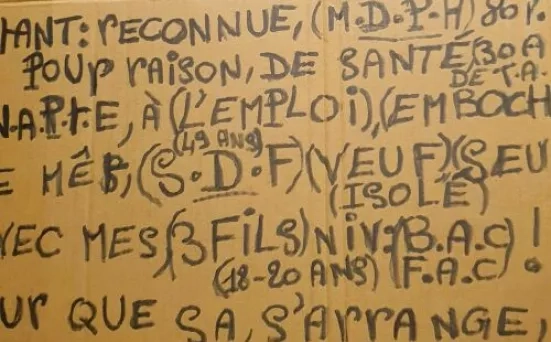 HANT: RECONNUE, (M.D.P.H) 80 P.
POUR RAISON, DE SANTÉ (30 A
DE T.A.
N.A.P.T.E, À (L'EMPLOI), (EMBOCH
(49 ANS)
E MÊB, (S.D.F) (VEUF) (SEU
(ISOLÉ)
VEC MES, (3 FILS) NIV: (B.A.C) !
(18-20 ANS) (F.A.C)
UR QUE SA, S'ARRANGE,